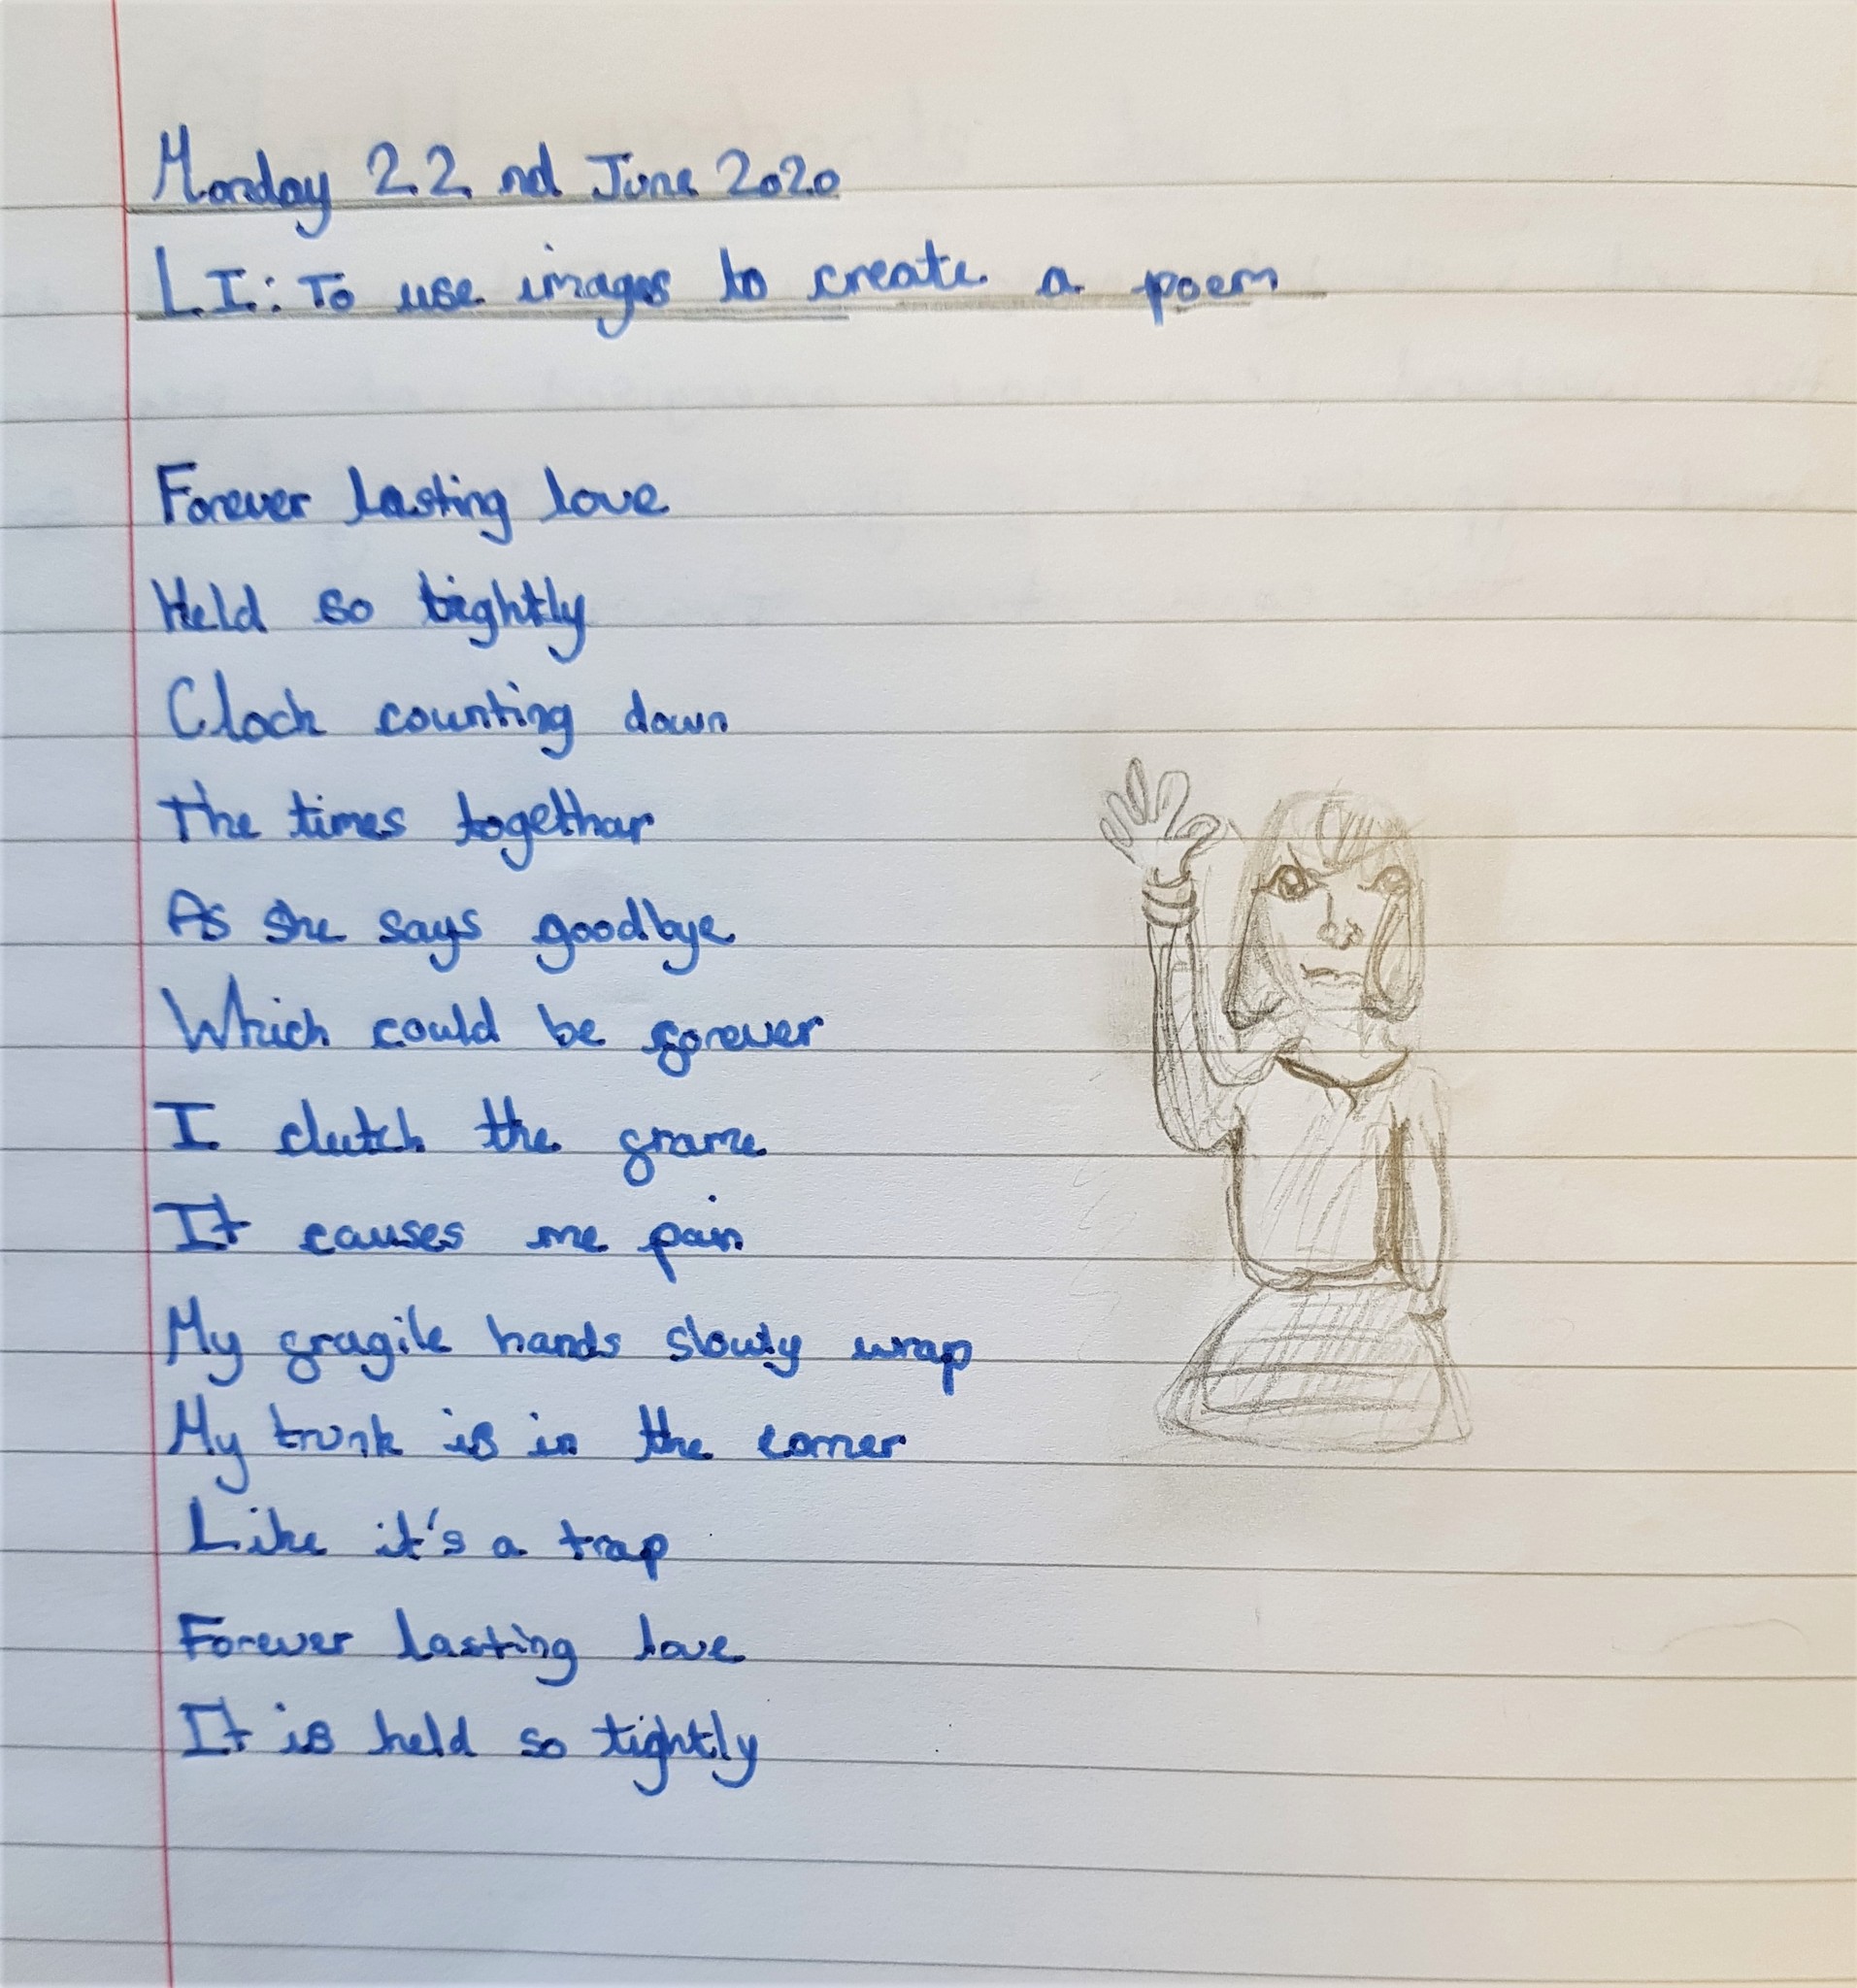 Monday 22nd June 2020
L.I.: To use images to create a poem
Forever lasting love
Held so tightly
Clock counting down
The times togethar
As she says goodbye
Which could be forever
I clutch the frame
It causes me pain
My fragile hands slowly wrap
My trunk is in the corner
Like it's a trap
Forever lasting love
It is held so tightly